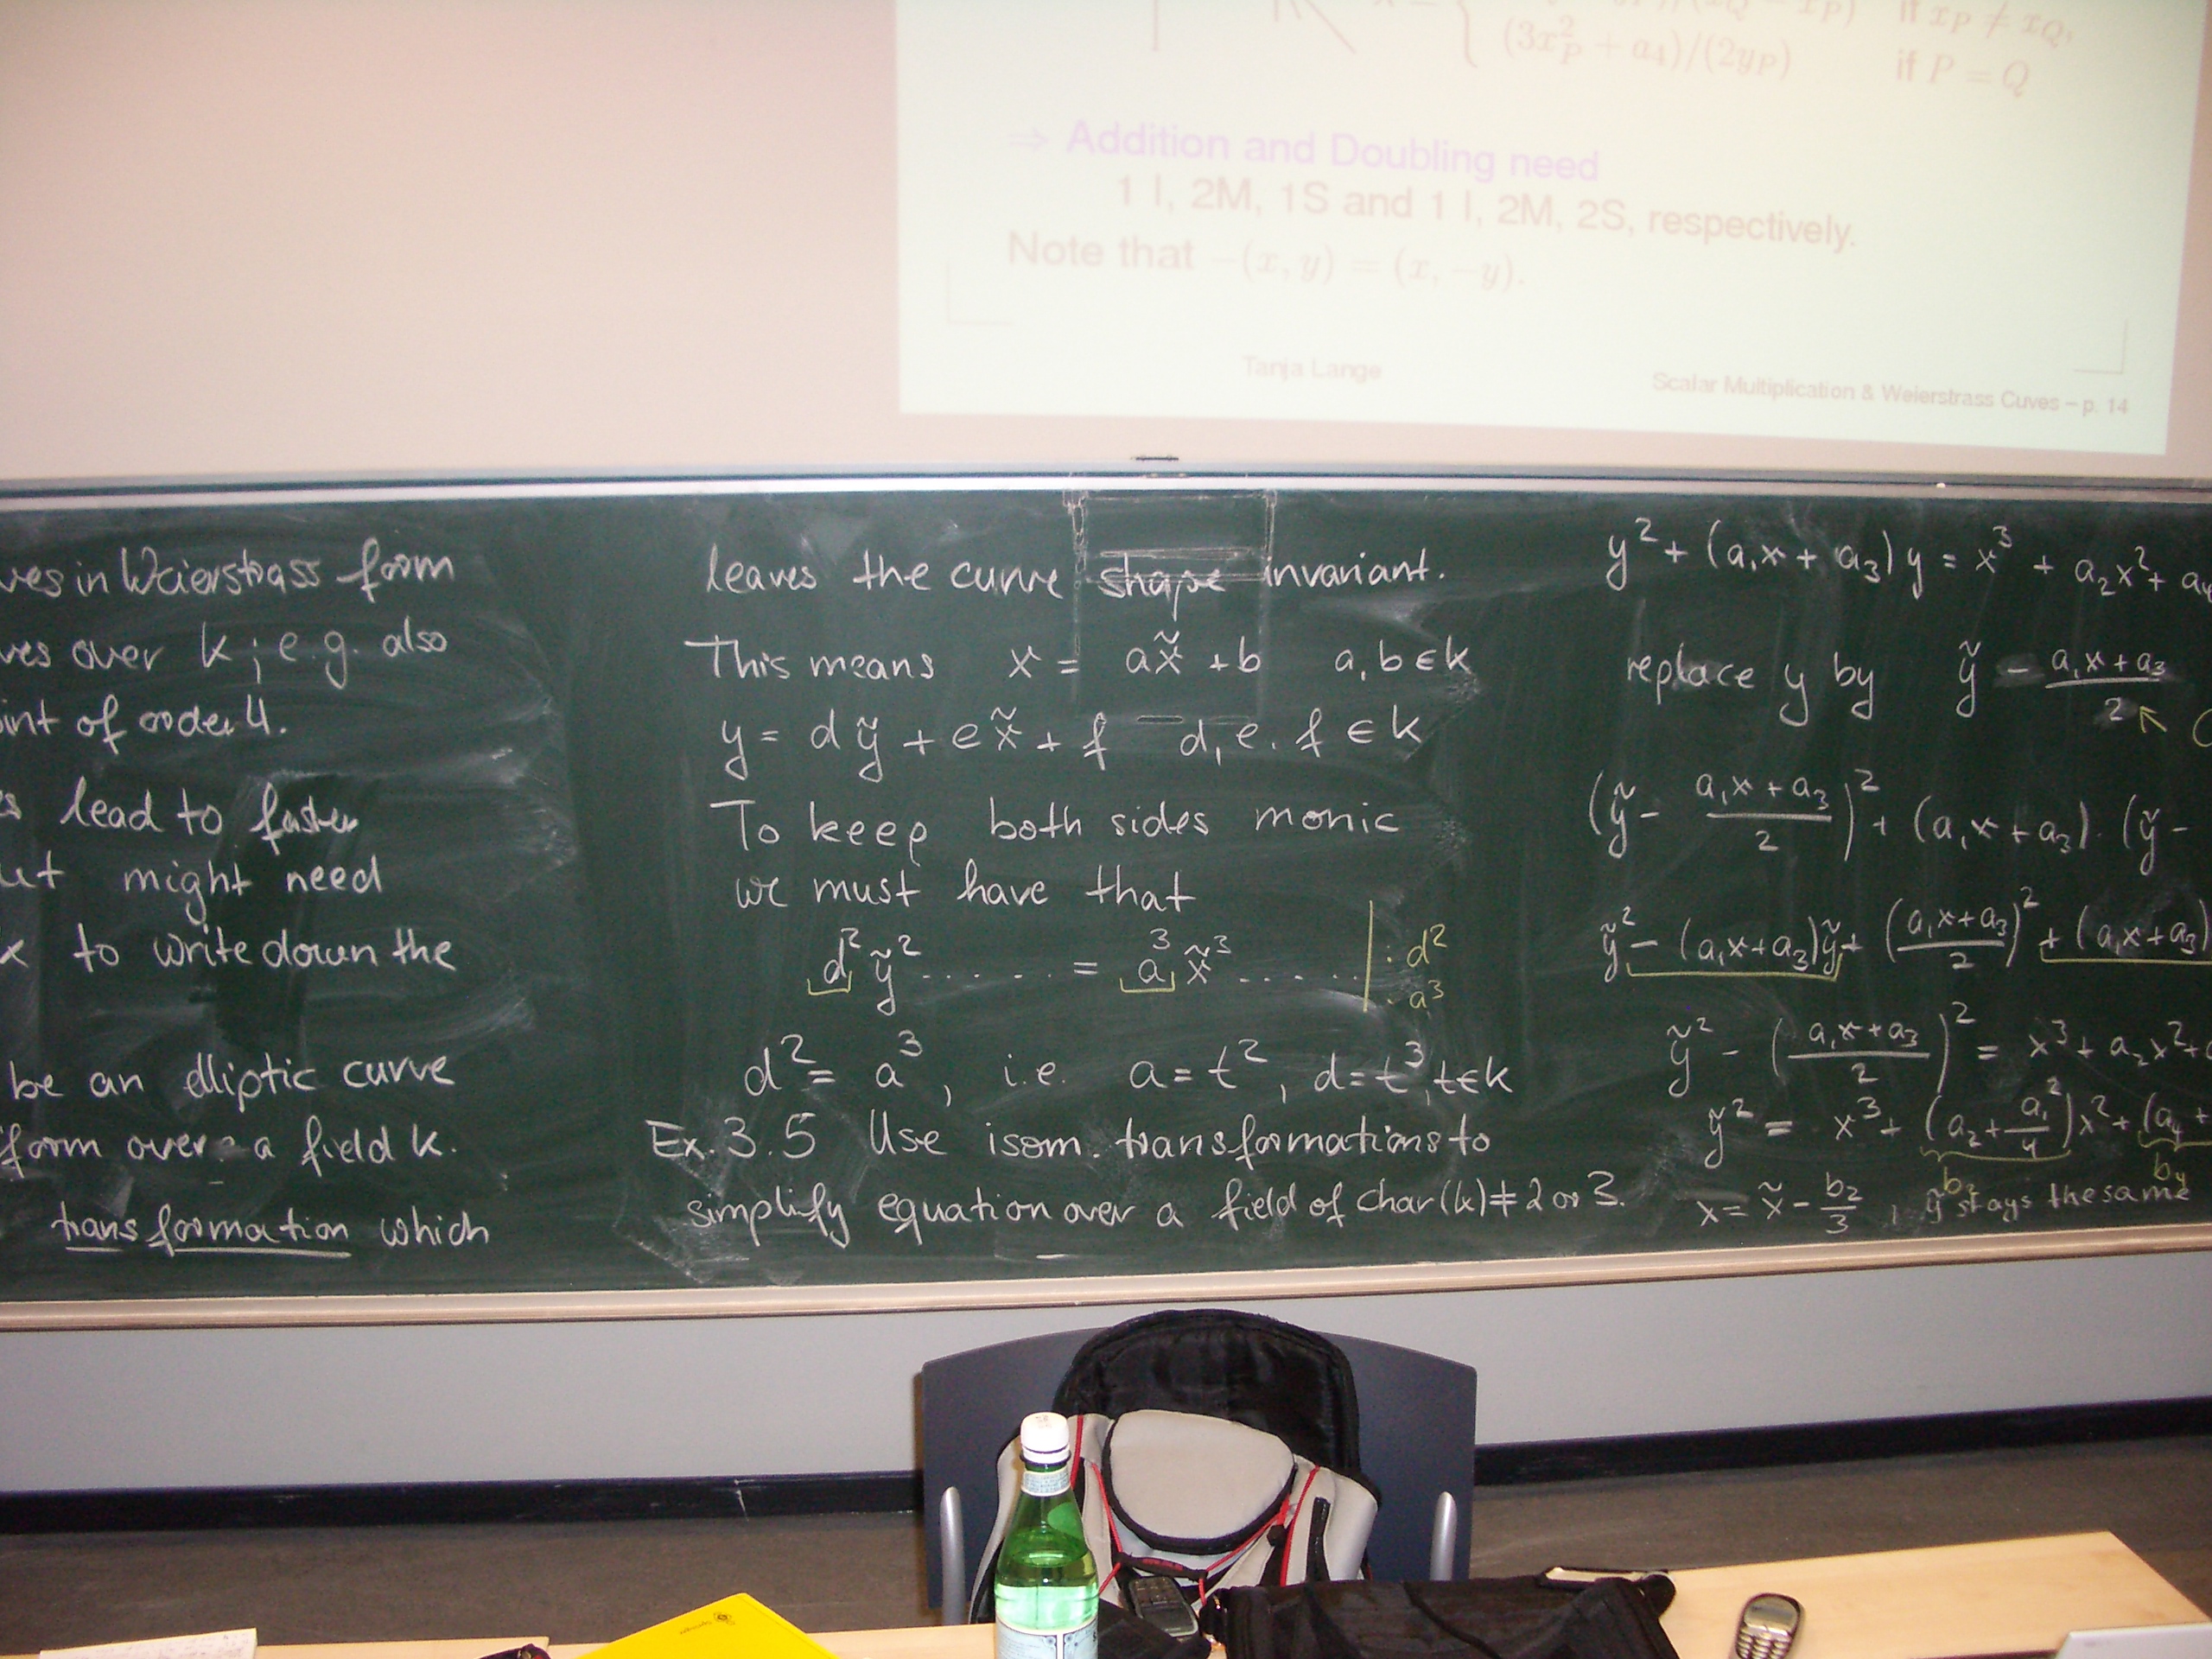 if x_P ≠ x_Q,
(3x_P^2 + a_4)/(2y_P) if P = Q
⇒ Addition and Doubling need
1 I, 2M, 1S and 1 I, 2M, 2S, respectively.
Note that −(x, y) = (x, −y).
Tanja Lange
Scalar Multiplication & Weierstrass Cuves – p. 14
in Weierstrass form
over k; e.g. also
of order 4.
lead to faster
might need
to write down the
be an elliptic curve
form over a field k.
transformation which
leaves the curve shape invariant.
This means x = ax̃ + b a, b ∈ k
y = dỹ + ex̃ + f d, e, f ∈ k
To keep both sides monic
we must have that
d²ỹ² ...... = a³x̃³ .... | : d²
: a³
d² = a³, i.e. a = t², d = t³, t ∈ k
Ex. 3.5 Use isom. transformations to
simplify equation over a field of char(k) ≠ 2 or 3.
y² + (a₁x + a₃)y = x³ + a₂x² + a₄
replace y by ỹ − (a₁x + a₃)/2
(ỹ − (a₁x + a₃)/2)² + (a₁x + a₃) · (ỹ −
ỹ² − (a₁x + a₃)ỹ + ((a₁x + a₃)/2)² + (a₁x + a₃)
ỹ² − ((a₁x + a₃)/2)² = x³ + a₂x² +
ỹ² = x³ + (a₂ + a₁²/4)x² + (a₄ +
b₂ b₄
x = x̃ − b₂/3 , ỹ stays the same